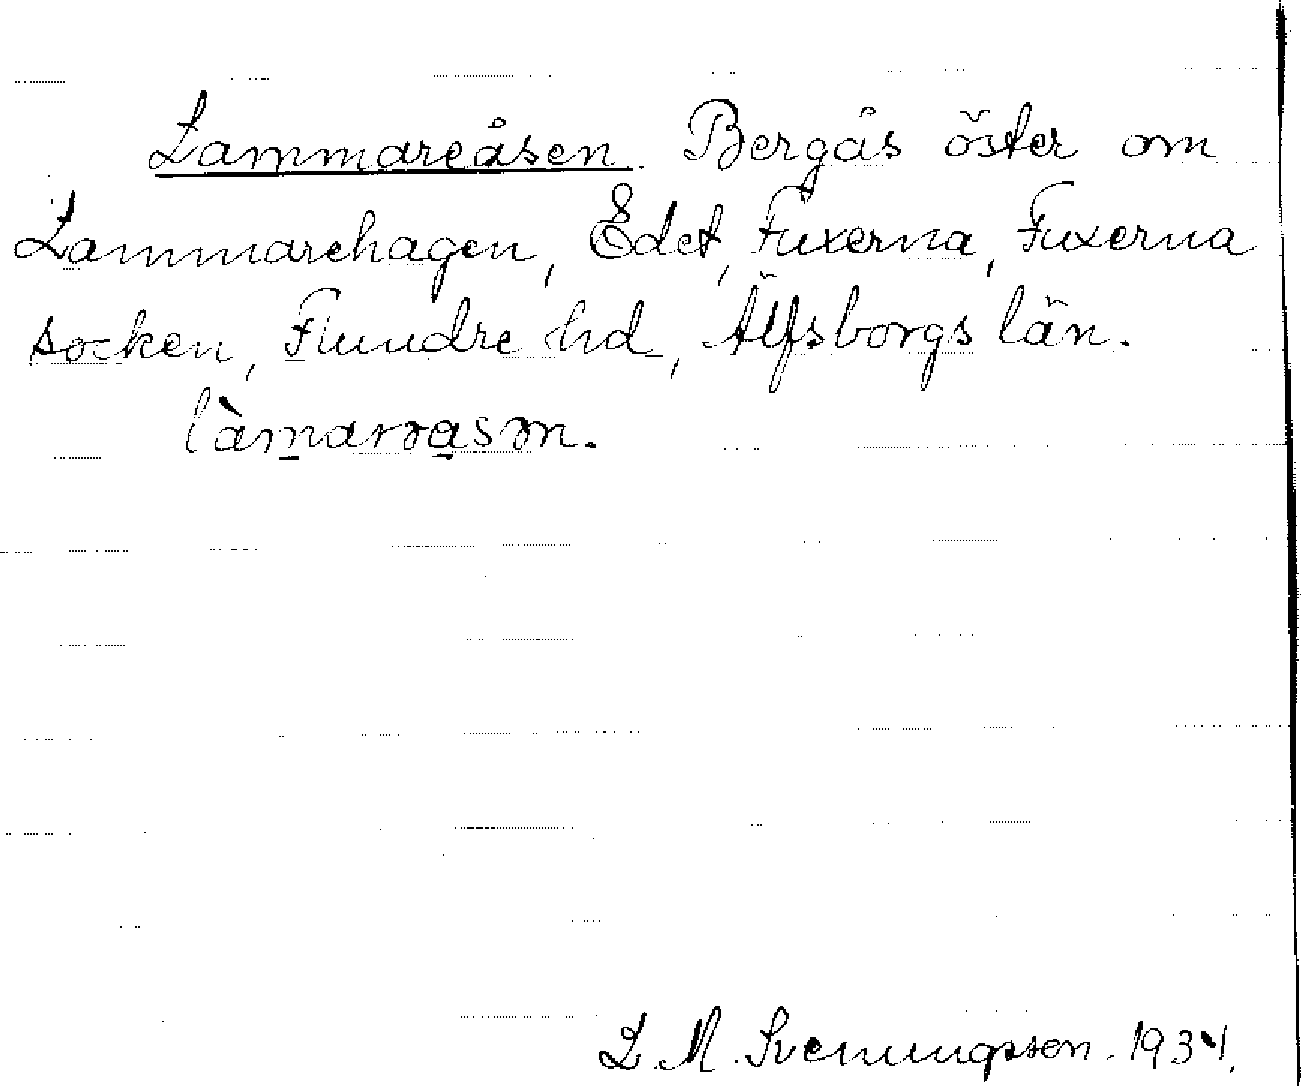 Lammareåsen. Bergås öster om
Lammarehagen, Edet, Fuxerna, Fuxerna
socken, Flundre hd, Älfsborgs län.
làmarəasən.
L. M. Svenungsson. 1934.